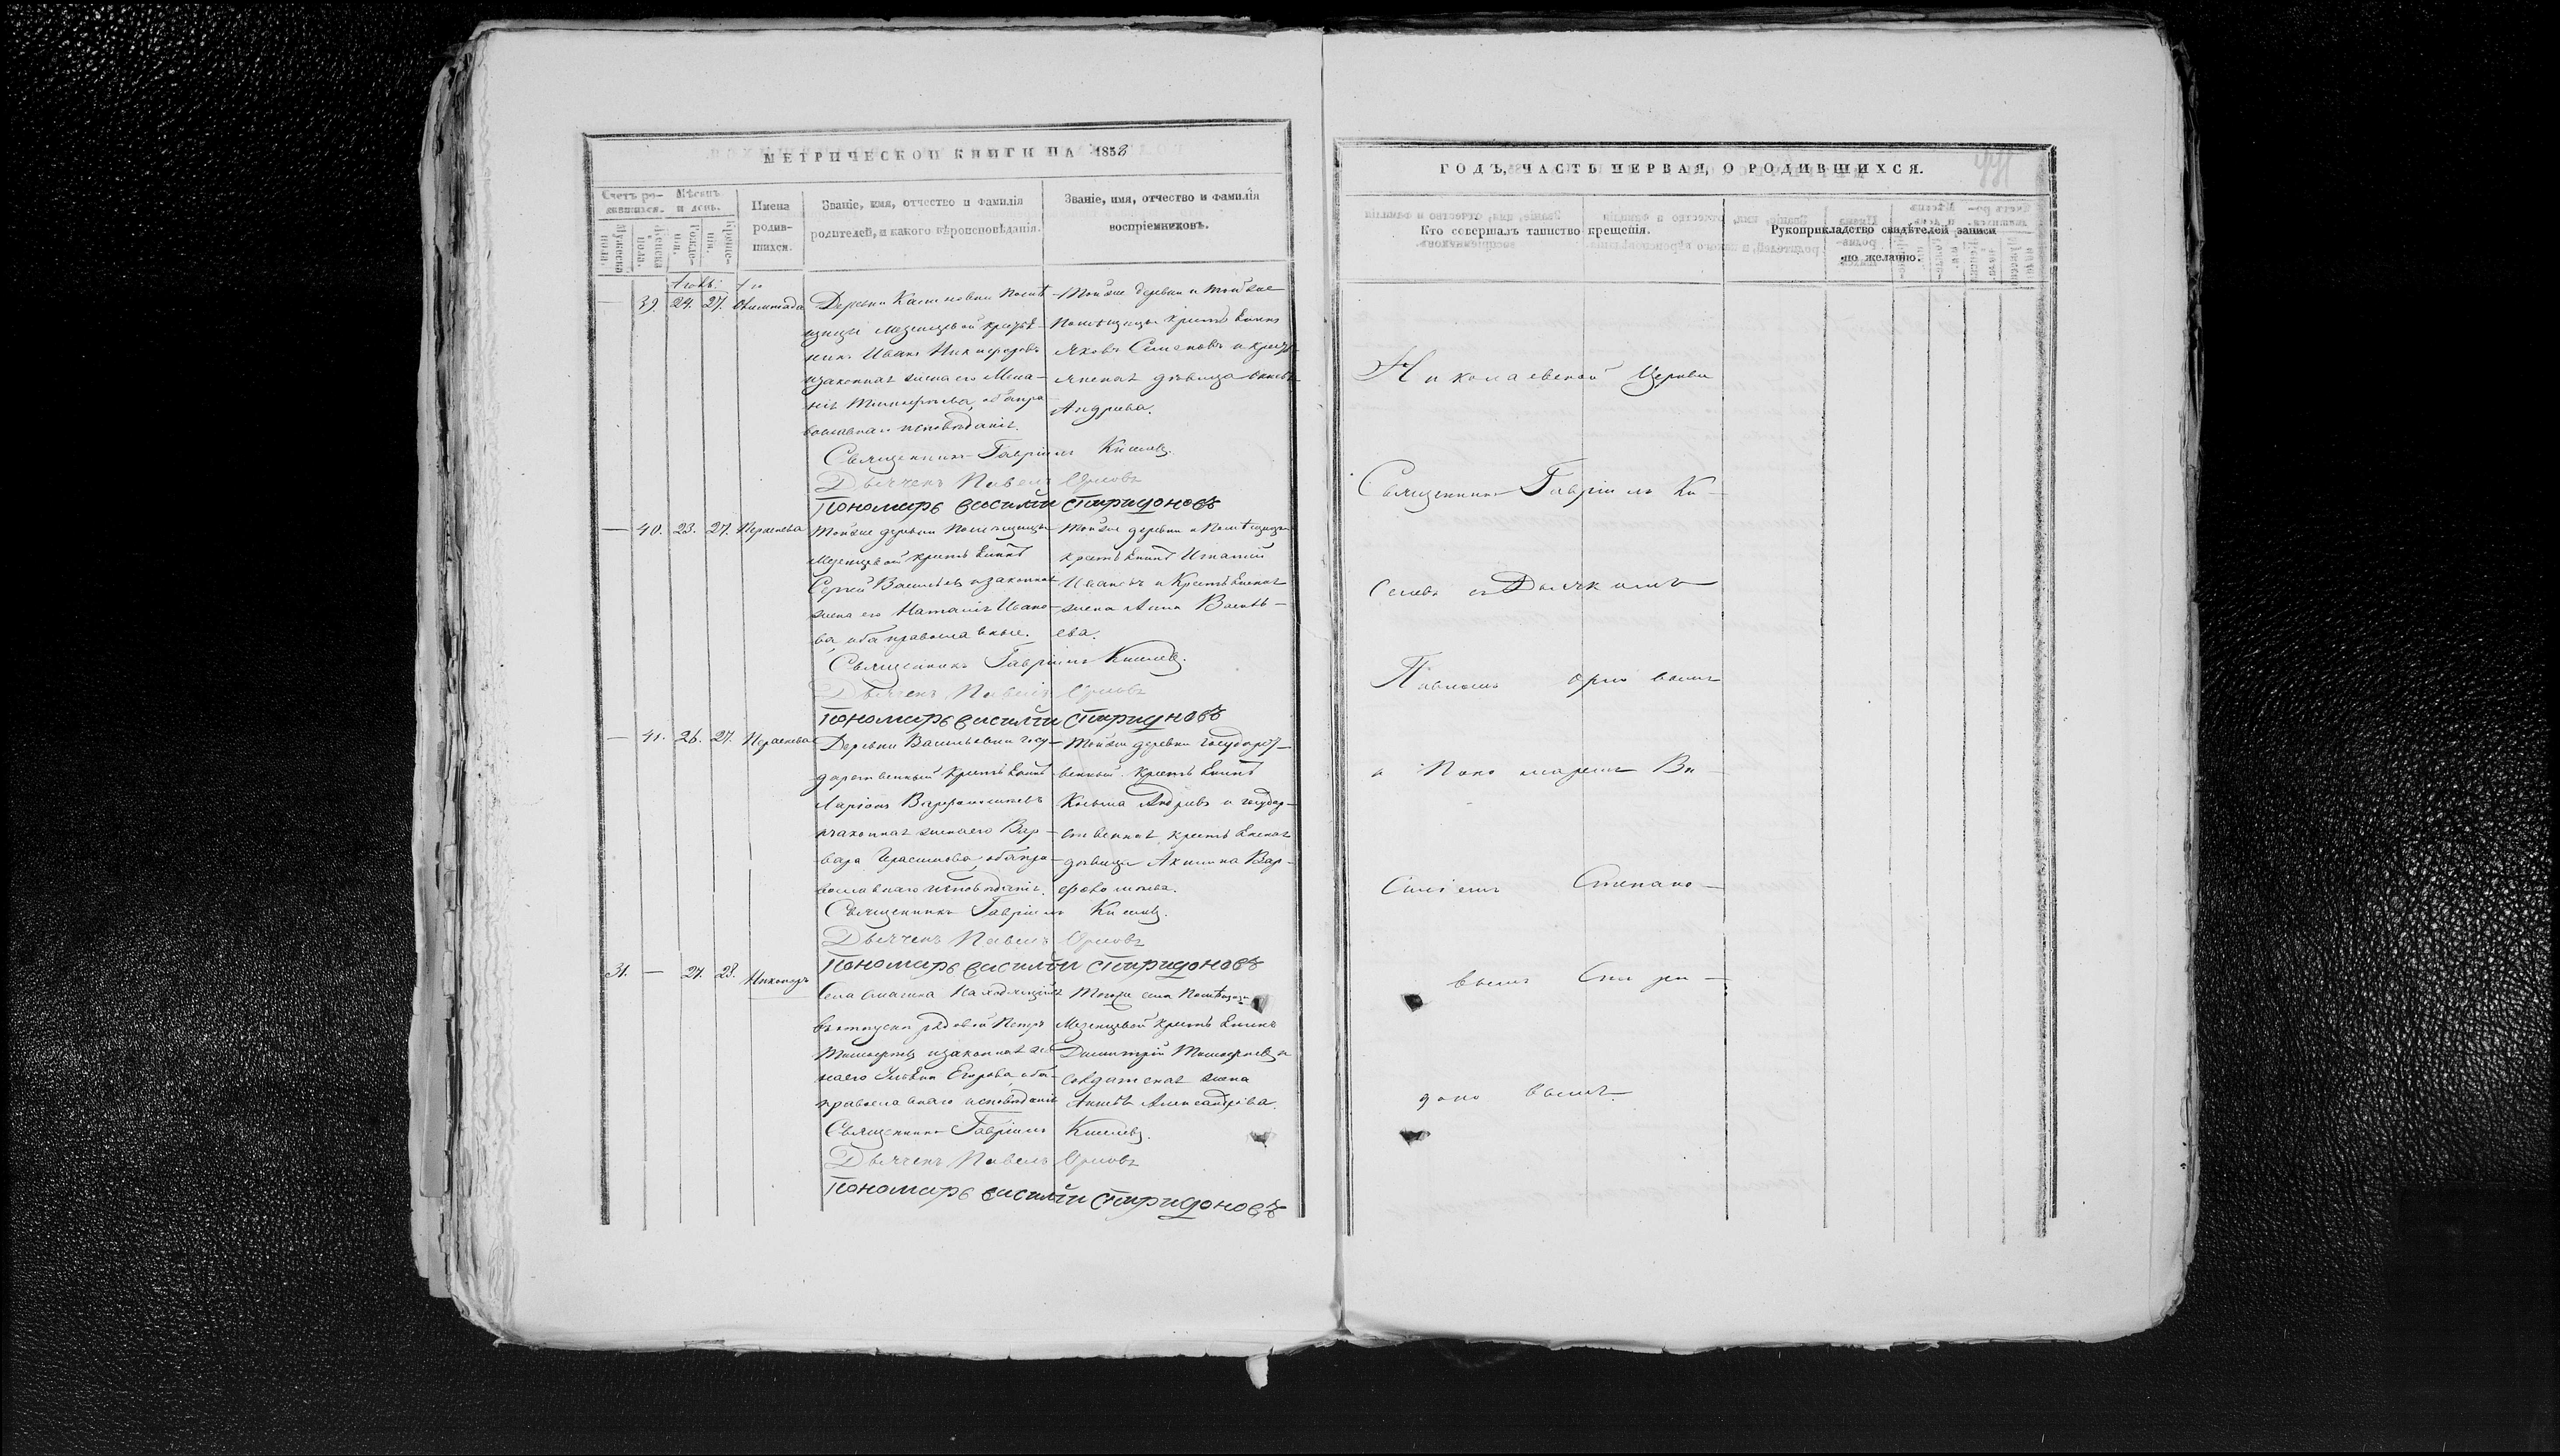 МЕТРИЧЕСКОЙ КНИГИ НА 1858
Счетъ ро-
дившихся.
Мѣсяцъ
и день.
Имена
родив-
шихся.
Званіе, имя, отчество и фамилія
родителей, и какого вѣроисповѣданія.
Званіе, имя, отчество и фамилія
воспріемниковъ.
Мужеска
пола.
Женска
пола.
Рожде-
нія.
Креще-
нія.
39. 24. 27.
Деревни
Иванъ Никифоровъ
изаконная жена его Мела-
нія Тимофеева, оба пра-
вославнаго исповѣданія.
Тойже деревни и тойже
Яковъ Семеновъ и
дѣвица
Андреева.
Священникъ Гавріилъ Киселевъ.
Дьячекъ Павелъ Орловъ
Пономарь василій спиридоновъ
40. 23. 27. Параскева
Тойже деревни Помещицы
Мезенцевой крестьянинъ
Сергей Васильевъ изаконная
жена его Наталія Ивано-
ва, оба православные.
Тойже деревни и Помѣщицы
крестьянинъ Игнатій
Ивановъ и Крестьянская
жена Анна Василь-
ева.
Священникъ Гавріилъ Киселевъ.
Дьячекъ Павелъ Орловъ
Пономарь василій спиридоновъ
41. 26. 27. Параскева
Деревни Васильевки госу-
дарственный крестьянинъ
Ларіонъ Варфоломеевъ
изаконная жена его Вар-
вара Герасимова, оба пра-
вославнаго исповѣданія.
Тойже деревни государст-
венный крестьянинъ
Козьма Андреевъ и государ-
ственная крестьянская
девица Акилина Вар-
фоломеева.
Священникъ Гавріилъ Киселевъ.
Дьячекъ Павелъ Орловъ
Пономарь василій спиридоновъ
31. — 27. 28. Никаноръ
Села находящійся
въ отпуску рядовой Петръ
Тимофеевъ изаконная же-
на его Улья Егорова, оба
православнаго исповѣданія
Тогоже села Помѣщицы
Мезенцевой крестьянинъ
Димитрій Тимофеевъ и
солдатская жена
Анисья Александрова.
Священникъ Гавріилъ Киселевъ.
Дьячекъ Павелъ Орловъ
Пономарь василій спиридоновъ
ГОДЪ, ЧАСТЬ ПЕРВАЯ, О РОДИВШИХСЯ.
Кто совершалъ таинство крещенія.
Рукоприкладство свидѣтелей записи
по желанію.
Николаевской Церкви
Священникъ Гавріилъ Ки-
селевъ съ Дьячкомъ
Павломъ Орловымъ
и Пономаремъ Ва-
силіемъ Степано-
вымъ Спири-
доновымъ.